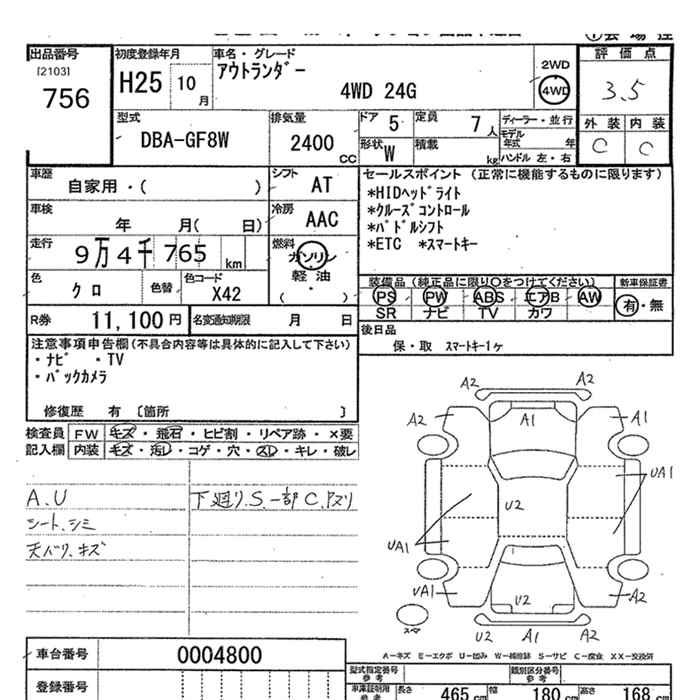 出品番号
[2103]
756
初度登録年月
H25 10月
車名・グレード
アウトランダー
4WD 24G
2WD
4WD
評価点
3.5
外装 内装
C C
型式
DBA-GF8W
排気量
2400 CC
ドア 5
定員 7人
形状 W
積載 kg
ディーラー・並行
モデル年式 年
ハンドル 左・右
車歴
自家用・( )
シフト AT
車検
年 月( 日)
冷房 AAC
走行
9万4千765 km
燃料
ガソリン
軽油
( )
色
クロ
色替
色コード
X42
R券 11,100円
名変通知期限 月 日
セールスポイント (正常に機能するものに限ります)
*HIDヘッドライト
*クルーズコントロール
*パドルシフト
*ETC *スマートキー
装備品 (純正品に限り○をつけてください)
PS PW ABS エアB AW
SR ナビ TV カワ
新車保証書
有・無
後日品
保・取 スマートキー1ヶ
注意事項申告欄(不具合内容等は具体的に記入して下さい)
・ナビ ・TV
・バックカメラ
修復歴 有 [箇所 ]
検査員 FW キズ・飛石・ヒビ割・リペア跡・×要
記入欄 内装 キズ・汚し・コゲ・穴・スレ・キレ・破レ
A.U
シート.シミ
天バリ.キズ
下廻り.S.一部C.Pズリ
A2 A2
A2 A1 A1
UA1
U2
UA1
UA1 U2 A2
スマ
U2 A1 A2
A-キズ E-エクボ U-凹み W-補修跡 S-サビ C-腐食 XX-交換済
車台番号 0004800
登録番号
型式指定番号 参考
類別区分番号 参考
車庫証明用 参考
長さ 465 cm
幅 180 cm
高さ 168 cm